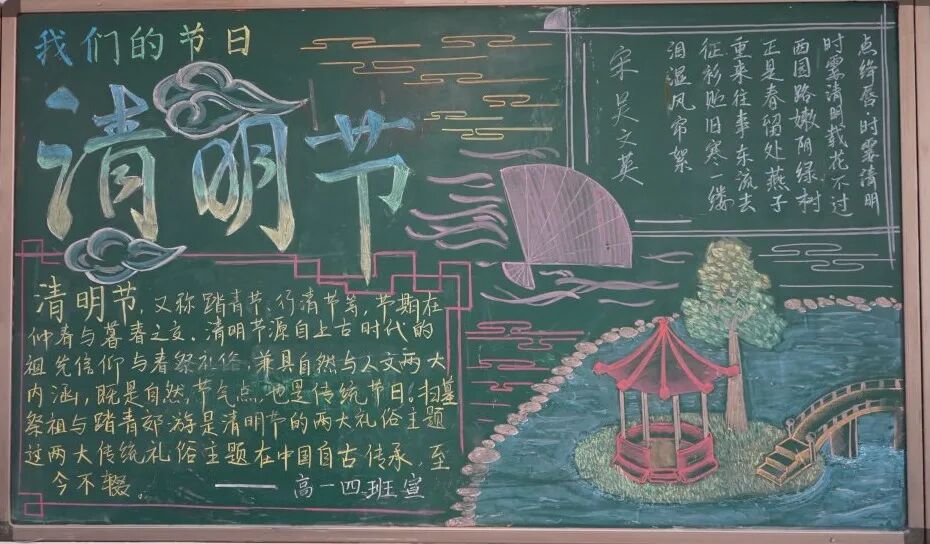 我们的节日
清明节
点绛唇时霎清明
时霎清明载花不过
西园路嫩阴绿树
正是春留处燕子
重来往事东流去
征衫贮旧寒一缕
泪湿风帘絮
宋 吴文英
清明节，又称踏青节、行清节等，节期在
仲春与暮春之交。清明节源自上古时代的
祖先信仰与春祭礼俗，兼具自然与人文两大
内涵，既是自然节气点，也是传统节日。扫墓
祭祖与踏青郊游是清明节的两大礼俗主题
这两大传统礼俗主题在中国自古传承，至
今不辍。
——高一四班宣